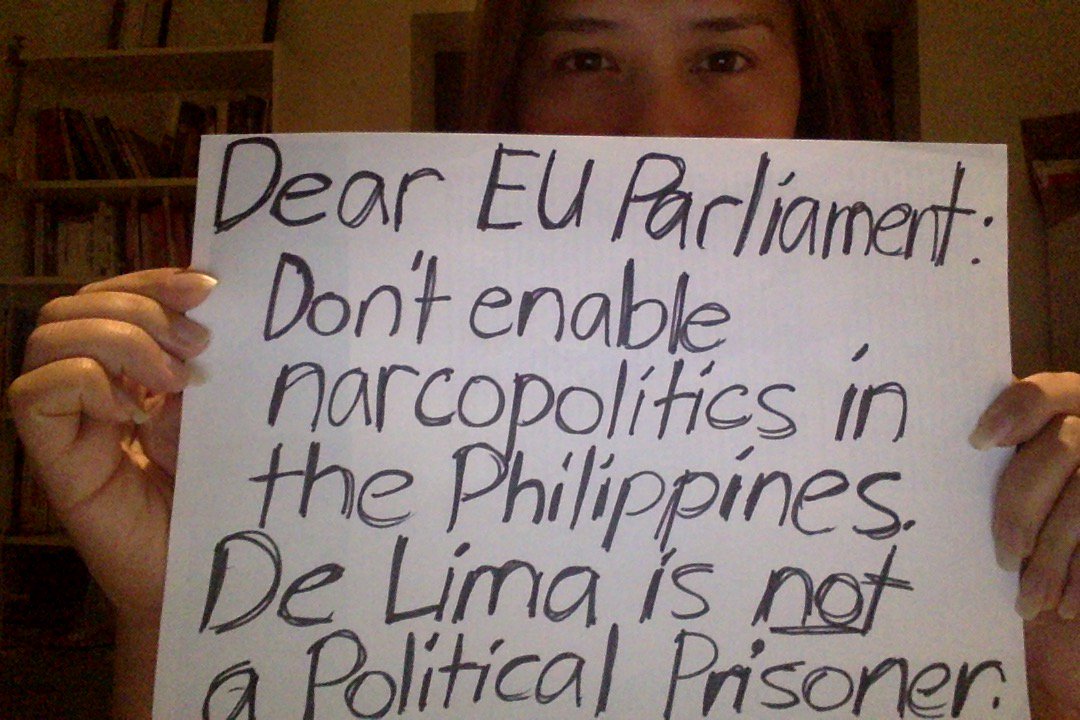 Dear EU Parliament:
Don't enable
narcopolitics in
the Philippines.
De Lima is not
a Political Prisoner.